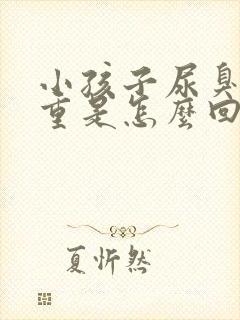 小孩子尿臭
重是怎麼回
夏忻然